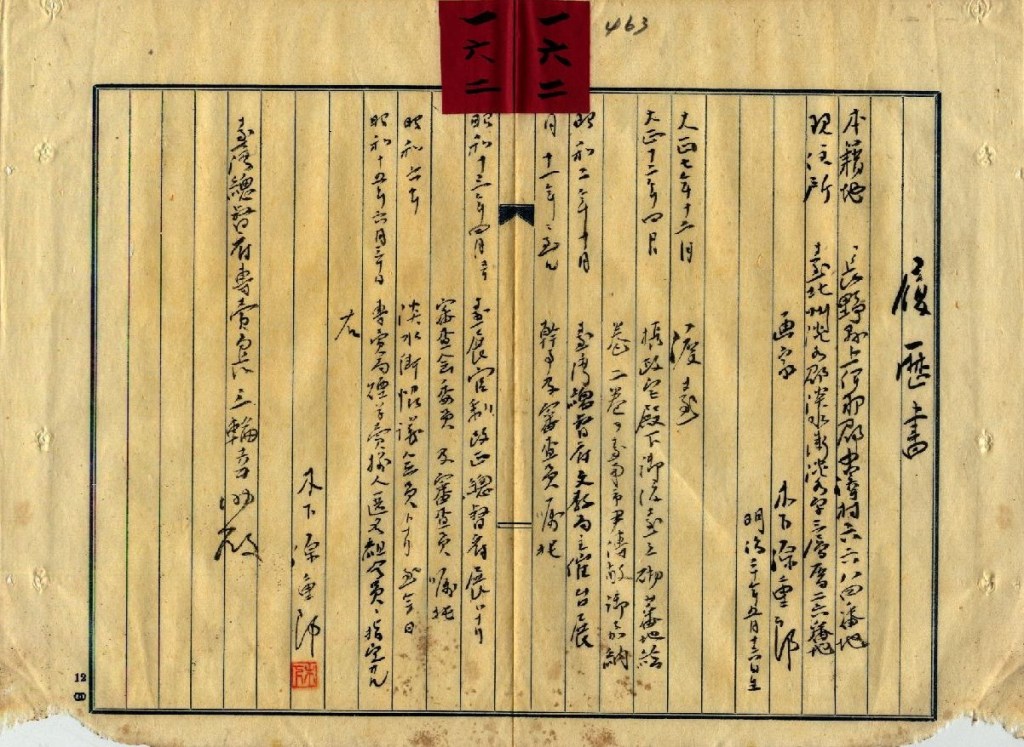 一六二 一六二
463
履歴書
本籍地 長野縣上伊那郡中澤村六六八四番地
現住所 臺北州淡水郡淡水街淡水字三層厝二六番地
画家 木下源重郎
明治二十年五月十六日生
大正七年十二月 渡臺
大正十二年四月 摂政宮殿下御渡臺之砌蕃地絵
巻二巻ヲ臺南市尹 献御嘉納
昭和二年十月 臺湾總督府文教局主催台展
十一年ニ至ル 幹事及審査員嘱托
昭和十三年四月 臺展官制改正總督府展トナリ
審査会委員及審査員嘱托
昭和六年 淡水街協議会員トナリ至今日
昭和十五年六月三十日 専賣局煙草賣捌人 組合員ニ指定サル
右
木下源重郎
臺湾總督府専賣局長三輪幸助殿
12